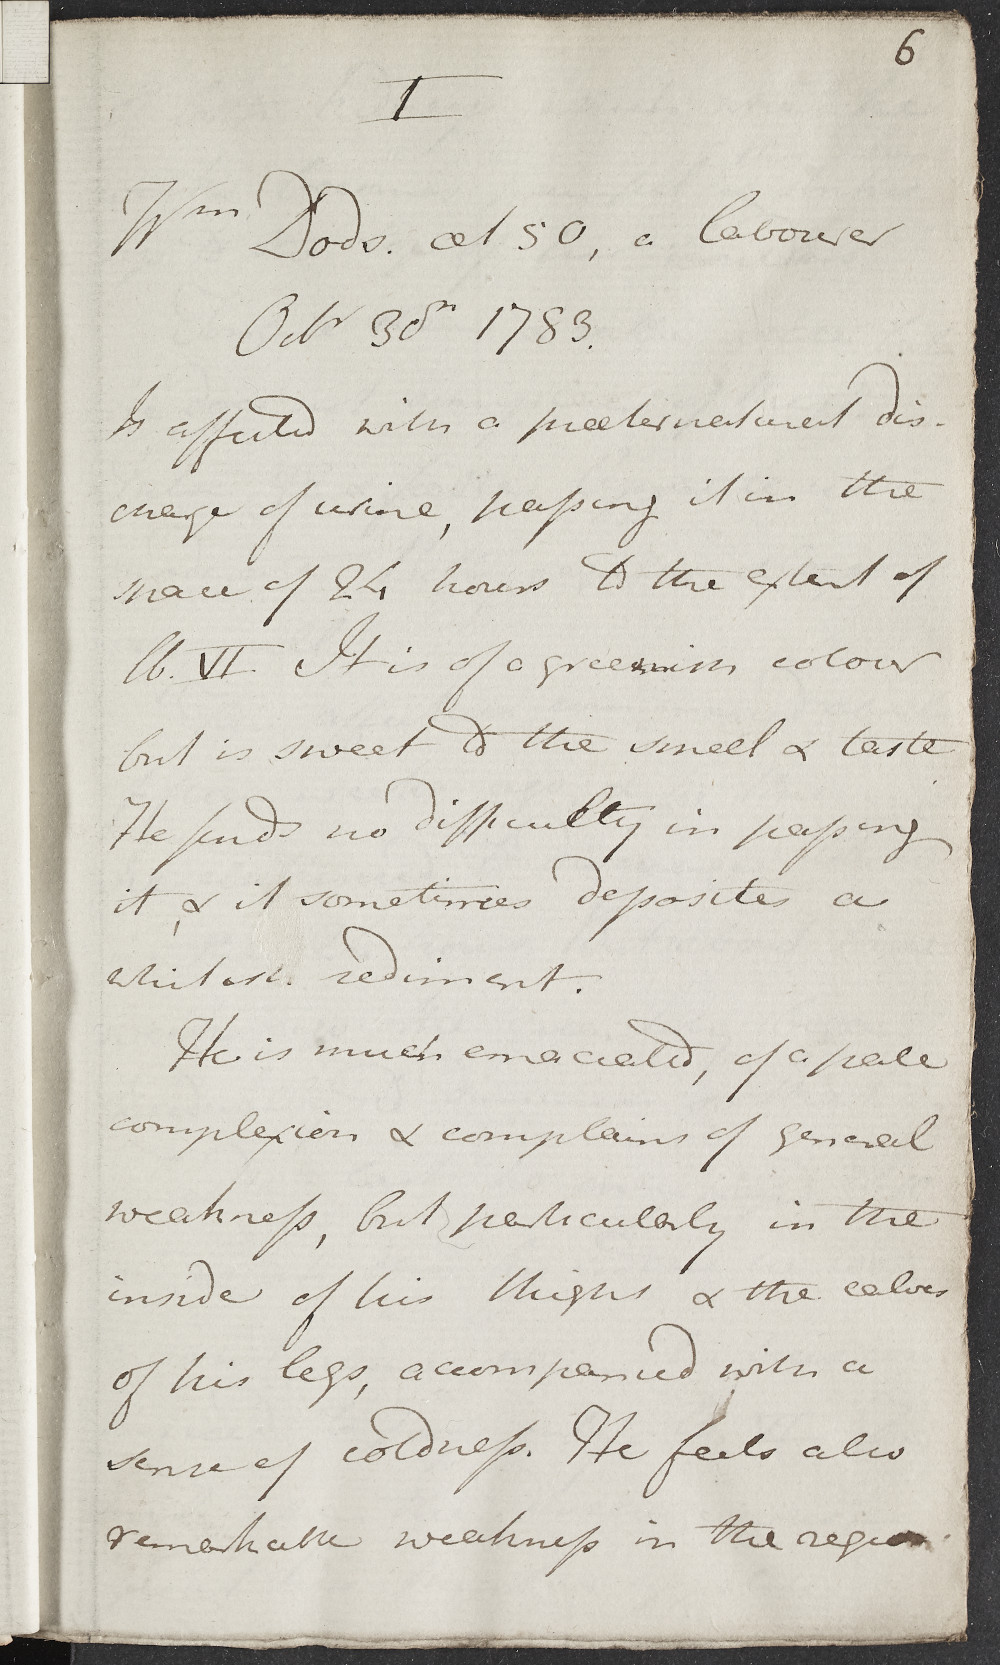 6
I
Wm Dods. æt 50, a labourer
Octr 30th 1783.
Is affected with a præeternatural dis-
charge of urine, passing it in the
space of 24 hours to the extent of
lb. VI. It is of a greenish colour
but is sweet to the smell & taste
He finds no difficulty in passing
it, & it sometimes deposites a
whitish sediment.
He is much emaciated, of a pale
complexion & complains of general
weakness, but particularly in the
inside of his thighs & the calves
of his legs, accompanied with a
sense of coldness. He feels also
remarkable weakness in the region